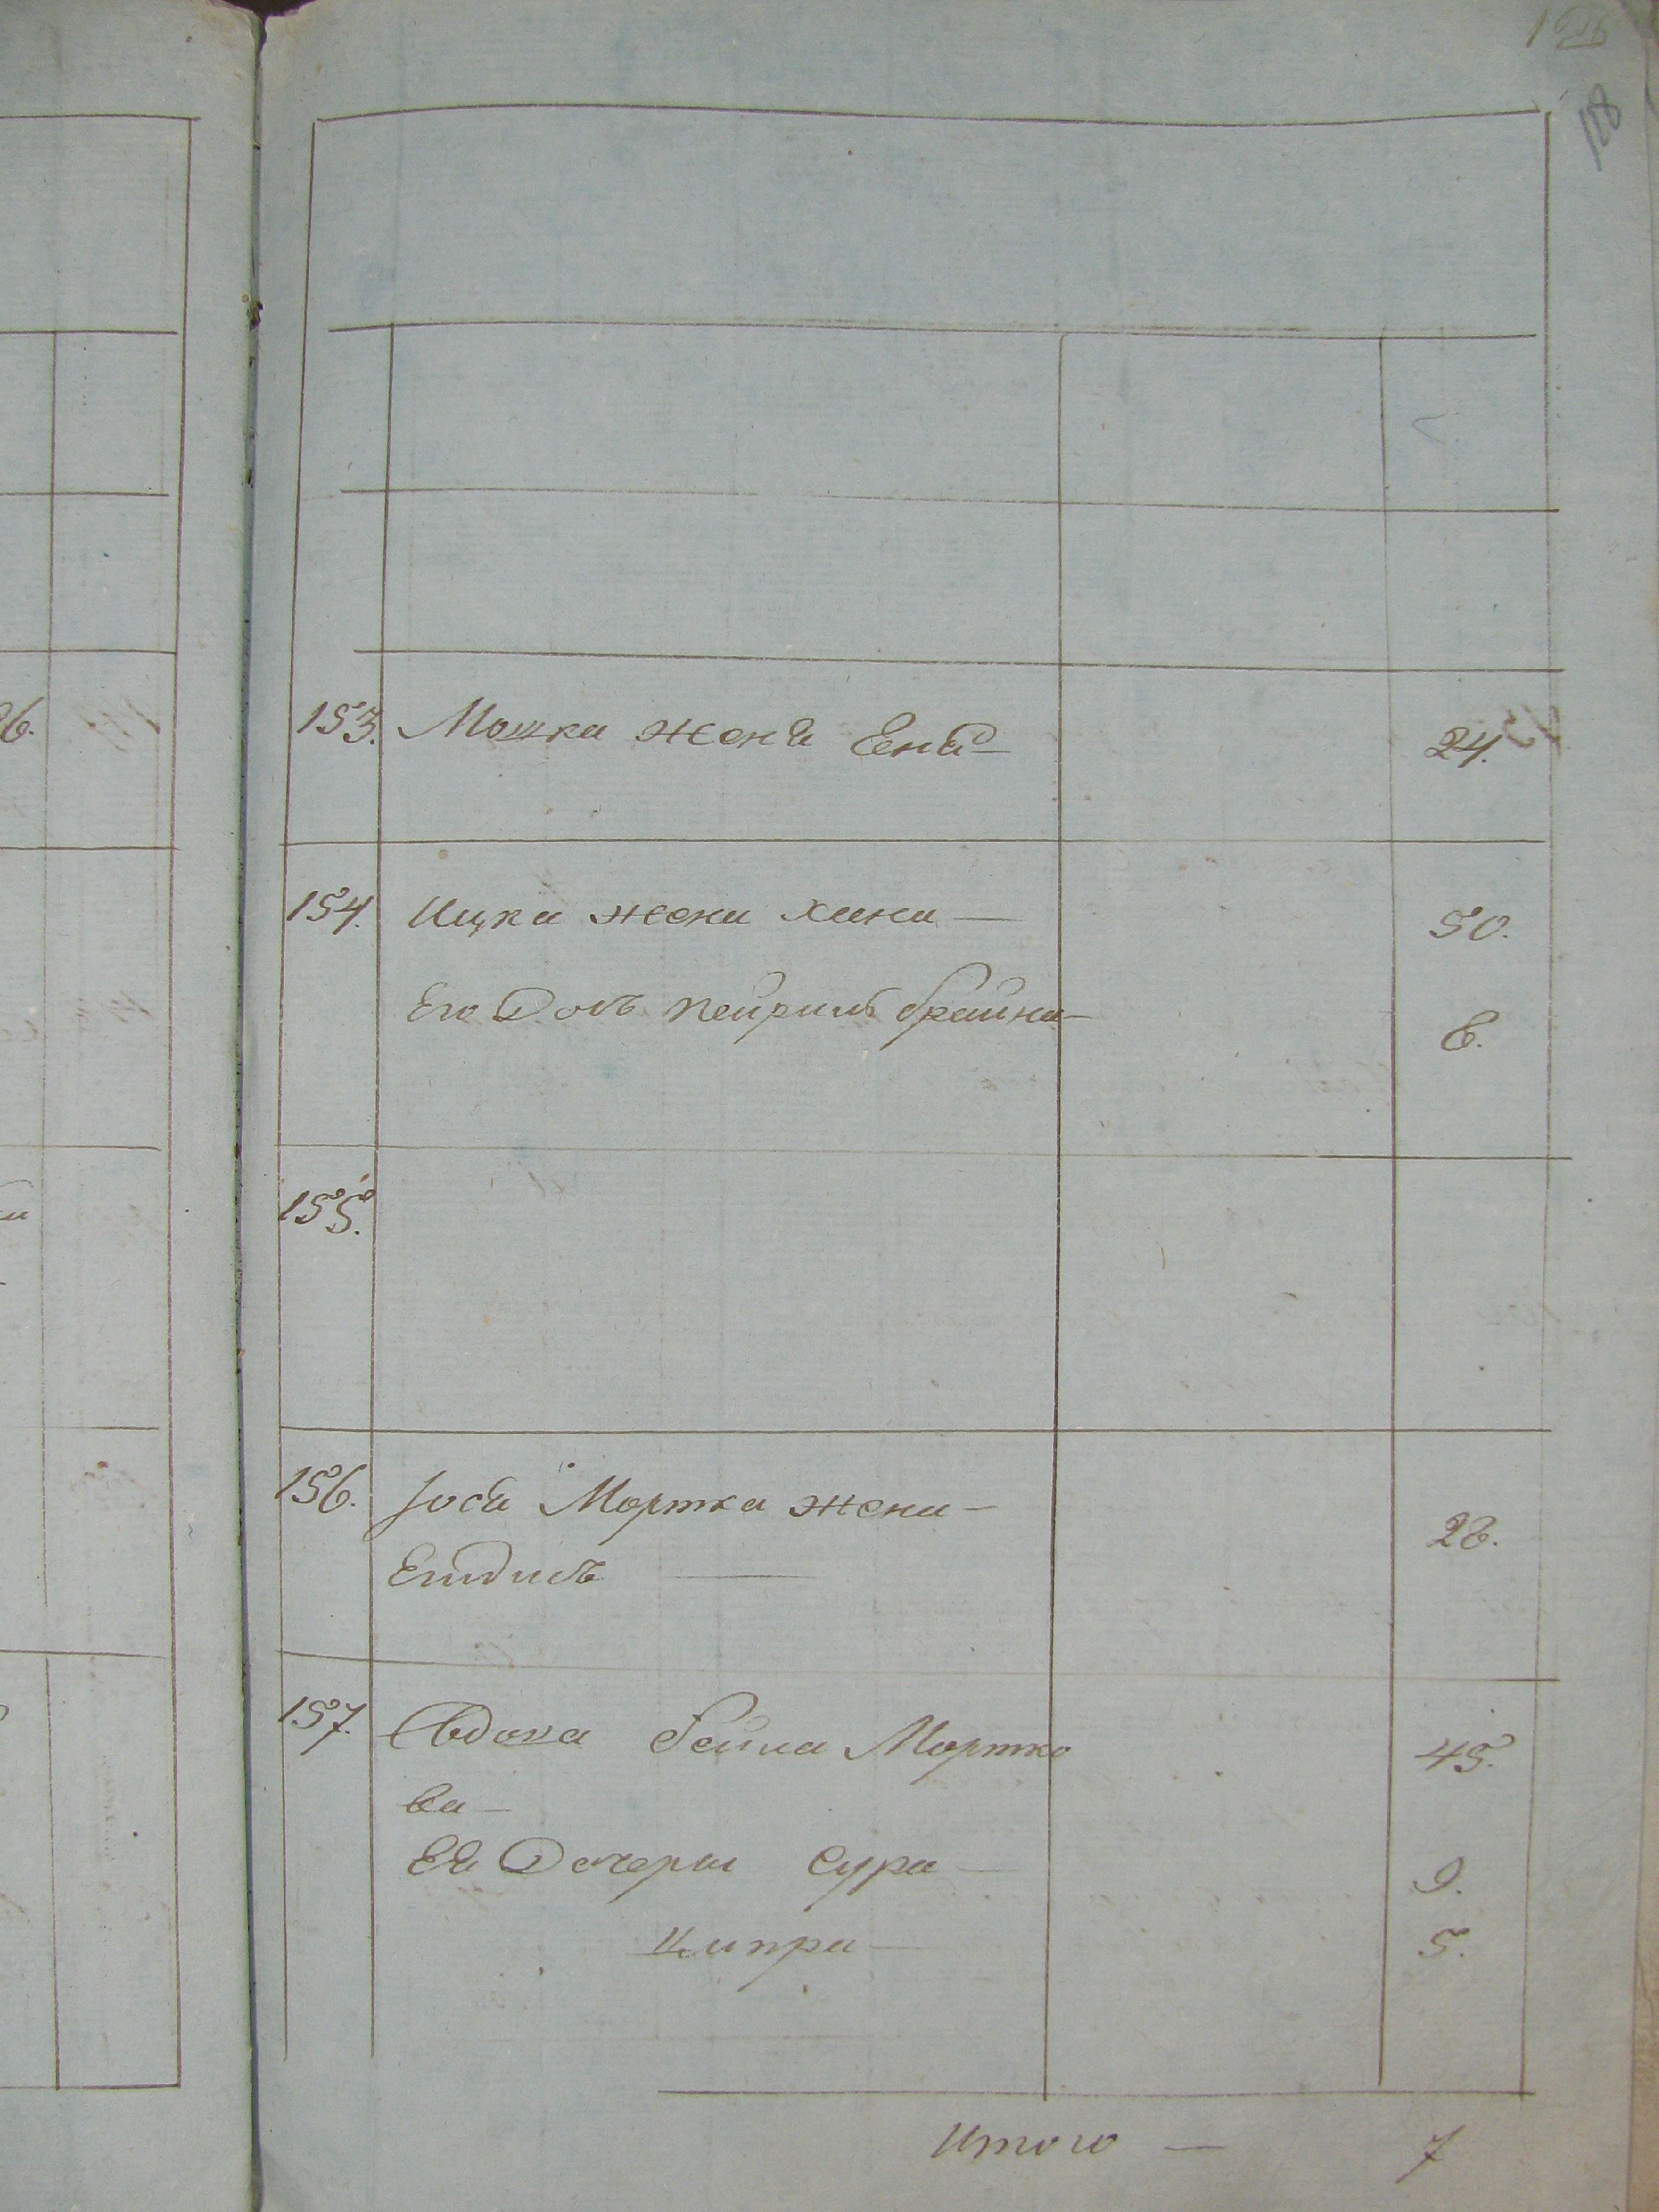 118
26.
153. Мошка жена Ена 24.
154. Ицка жена хана 50.
Его Дочь Пейриль брайна 8.
155.
156. Іоса Мортка жена
Ешдись 28.
157. Вдова бейла Мортко
ва 45.
Ея Дочеры Сура 9.
Ципра 5.
Итого 7